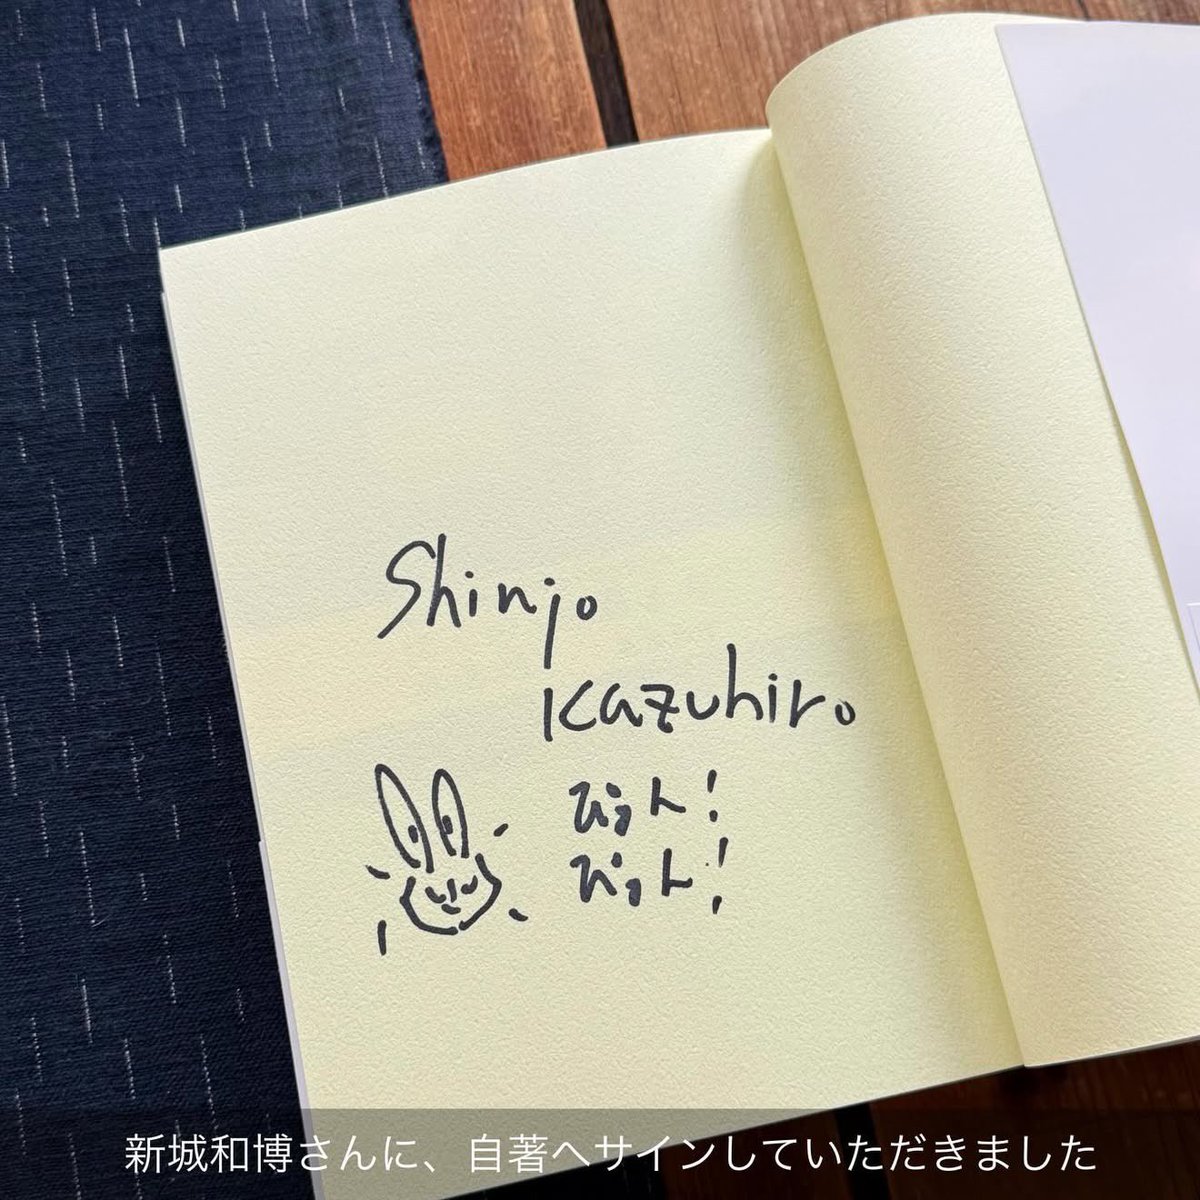 Shinjo
Kazuhiro
ぴょん!
ぴょん!
新城和博さんに、自著へサインしていただきました